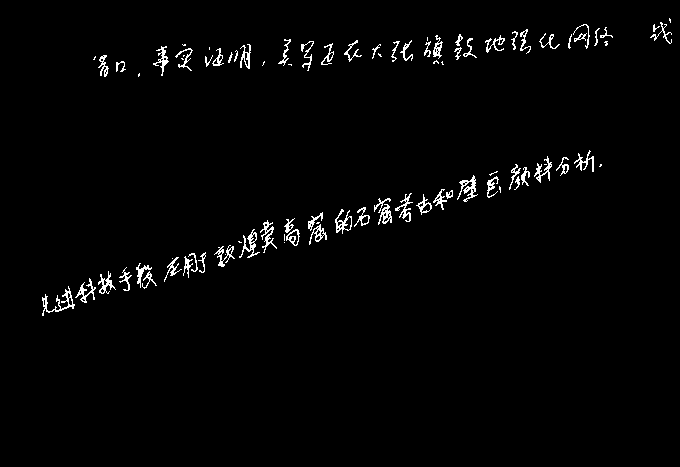 借口,事实证明,美军正在大张旗鼓地强化网络战
先进科技手段应用于敦煌莫高窟的石窟考古和壁画颜料分析.